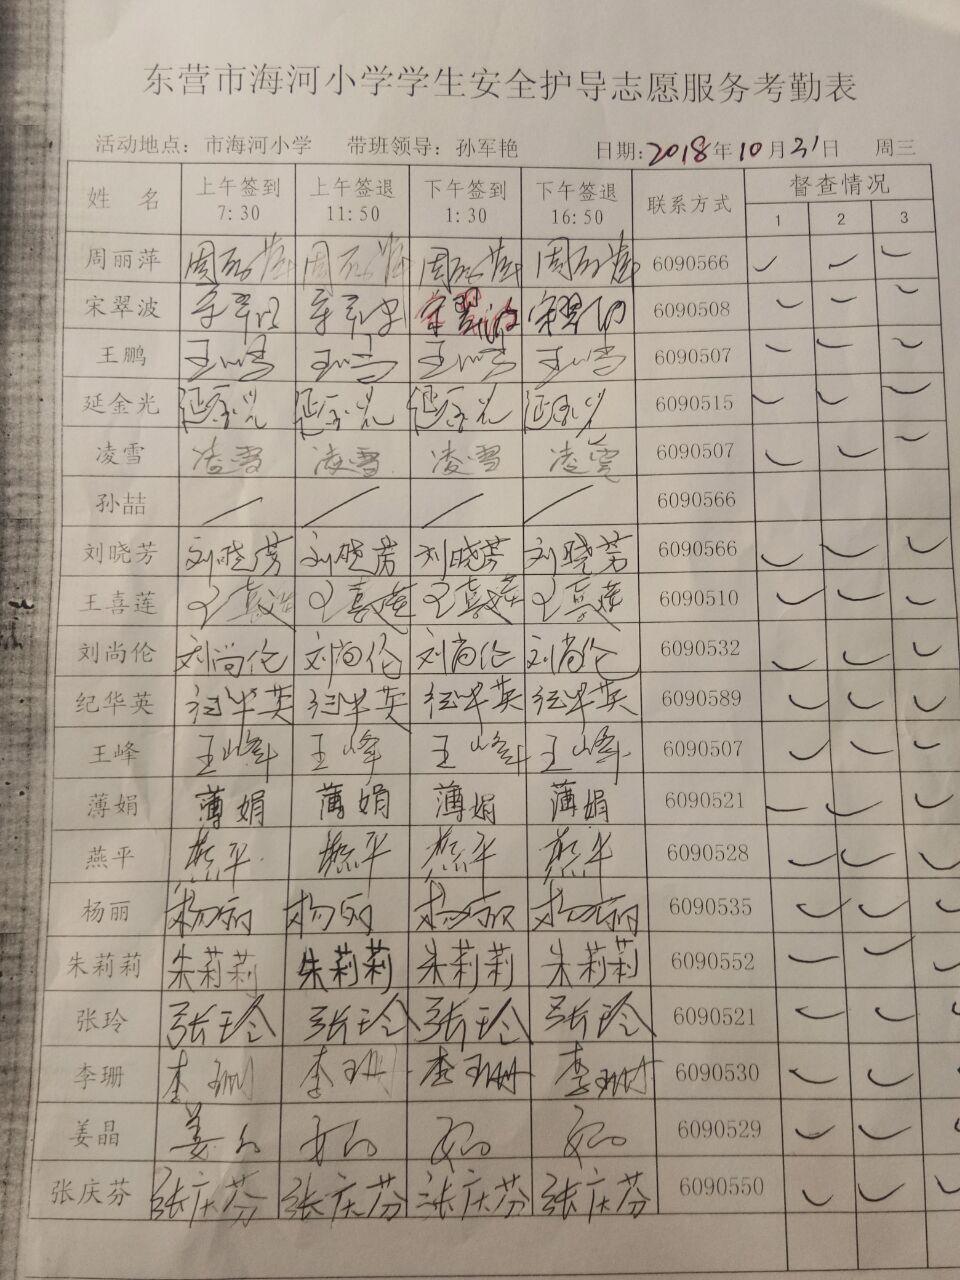 东营市海河小学学生安全护导志愿服务考勤表
活动地点：市海河小学 带班领导：孙军艳 日期：2018年10月31日 周三
姓 名 上午签到 7:30 上午签退 11:50 下午签到 1:30 下午签退 16:50 联系方式 督查情况
1 2 3
周丽萍 周丽萍 周丽萍 周丽萍 周丽萍 6090566
宋翠波 宋翠波 6090508
王鹏 6090507
延金光 延金光 延金光 延金光 延金光 6090515
凌雪 凌雪 凌雪 凌雪 凌雪 6090507
孙喆 6090566
刘晓芳 刘晓芳 刘晓芳 刘晓芳 刘晓芳 6090566
王喜莲 王喜莲 王喜莲 王喜莲 王喜莲 6090510
刘尚伦 刘尚伦 刘尚伦 刘尚伦 刘尚伦 6090532
纪华英 纪华英 纪华英 纪华英 纪华英 6090589
王峰 王峰 王峰 王峰 王峰 6090507
薄娟 薄娟 薄娟 薄娟 薄娟 6090521
燕平 燕平 燕平 燕平 燕平 6090528
杨丽 杨丽 杨丽 杨丽 杨丽 6090535
朱莉莉 朱莉莉 朱莉莉 朱莉莉 朱莉莉 6090552
张玲 张玲 张玲 张玲 张玲 6090521
李珊 李珊 李珊 李珊 李珊 6090530
姜晶 6090529
张庆芬 张庆芬 张庆芬 张庆芬 张庆芬 6090550